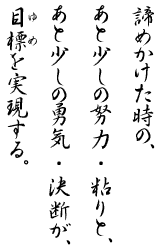 諦めかけた時の、
あと少しの努力・粘りと、
あと少しの勇気・決断が、
目標を実現する。
ゆめ